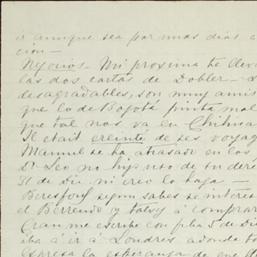 ir aunque sea por unos dias
cion —
Negocios — Mi proxima te
las dos cartas de Dobler —
desagradables, son muy amis
que lo de Bogotá pinta mal
que tal nos va en Chihua
Il était éreinté de ses voyag
Manuel se ha atrasado en los
Dr. Leo no hizo uso de su
11 de Dic ni creo lo haga —
Beresford segun sabes se interes
el Berrendo y salvo á comprar
me escribe con fcha 5 de Di
iba á ir á Londres adonde
espresa la esperanza de que